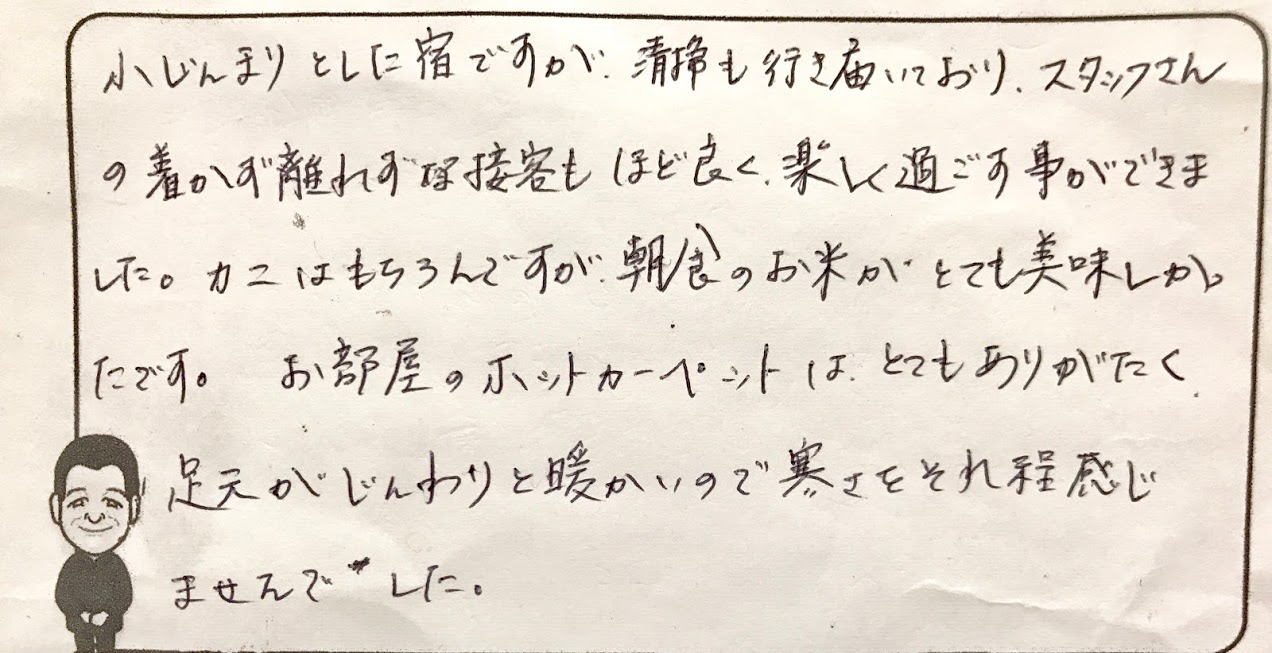 小じんまりとした宿ですが、清掃も行き届いており、スタッフさん
の着かず離れずな接客もほど良く、楽しく過ごす事ができま
した。カニはもちろんですが、朝食のお米がとても美味しかっ
たです。 お部屋のホットカーペットは、とてもありがたく
足元がじんわりと暖かいので寒さをそれ程感じ
ませんでした。